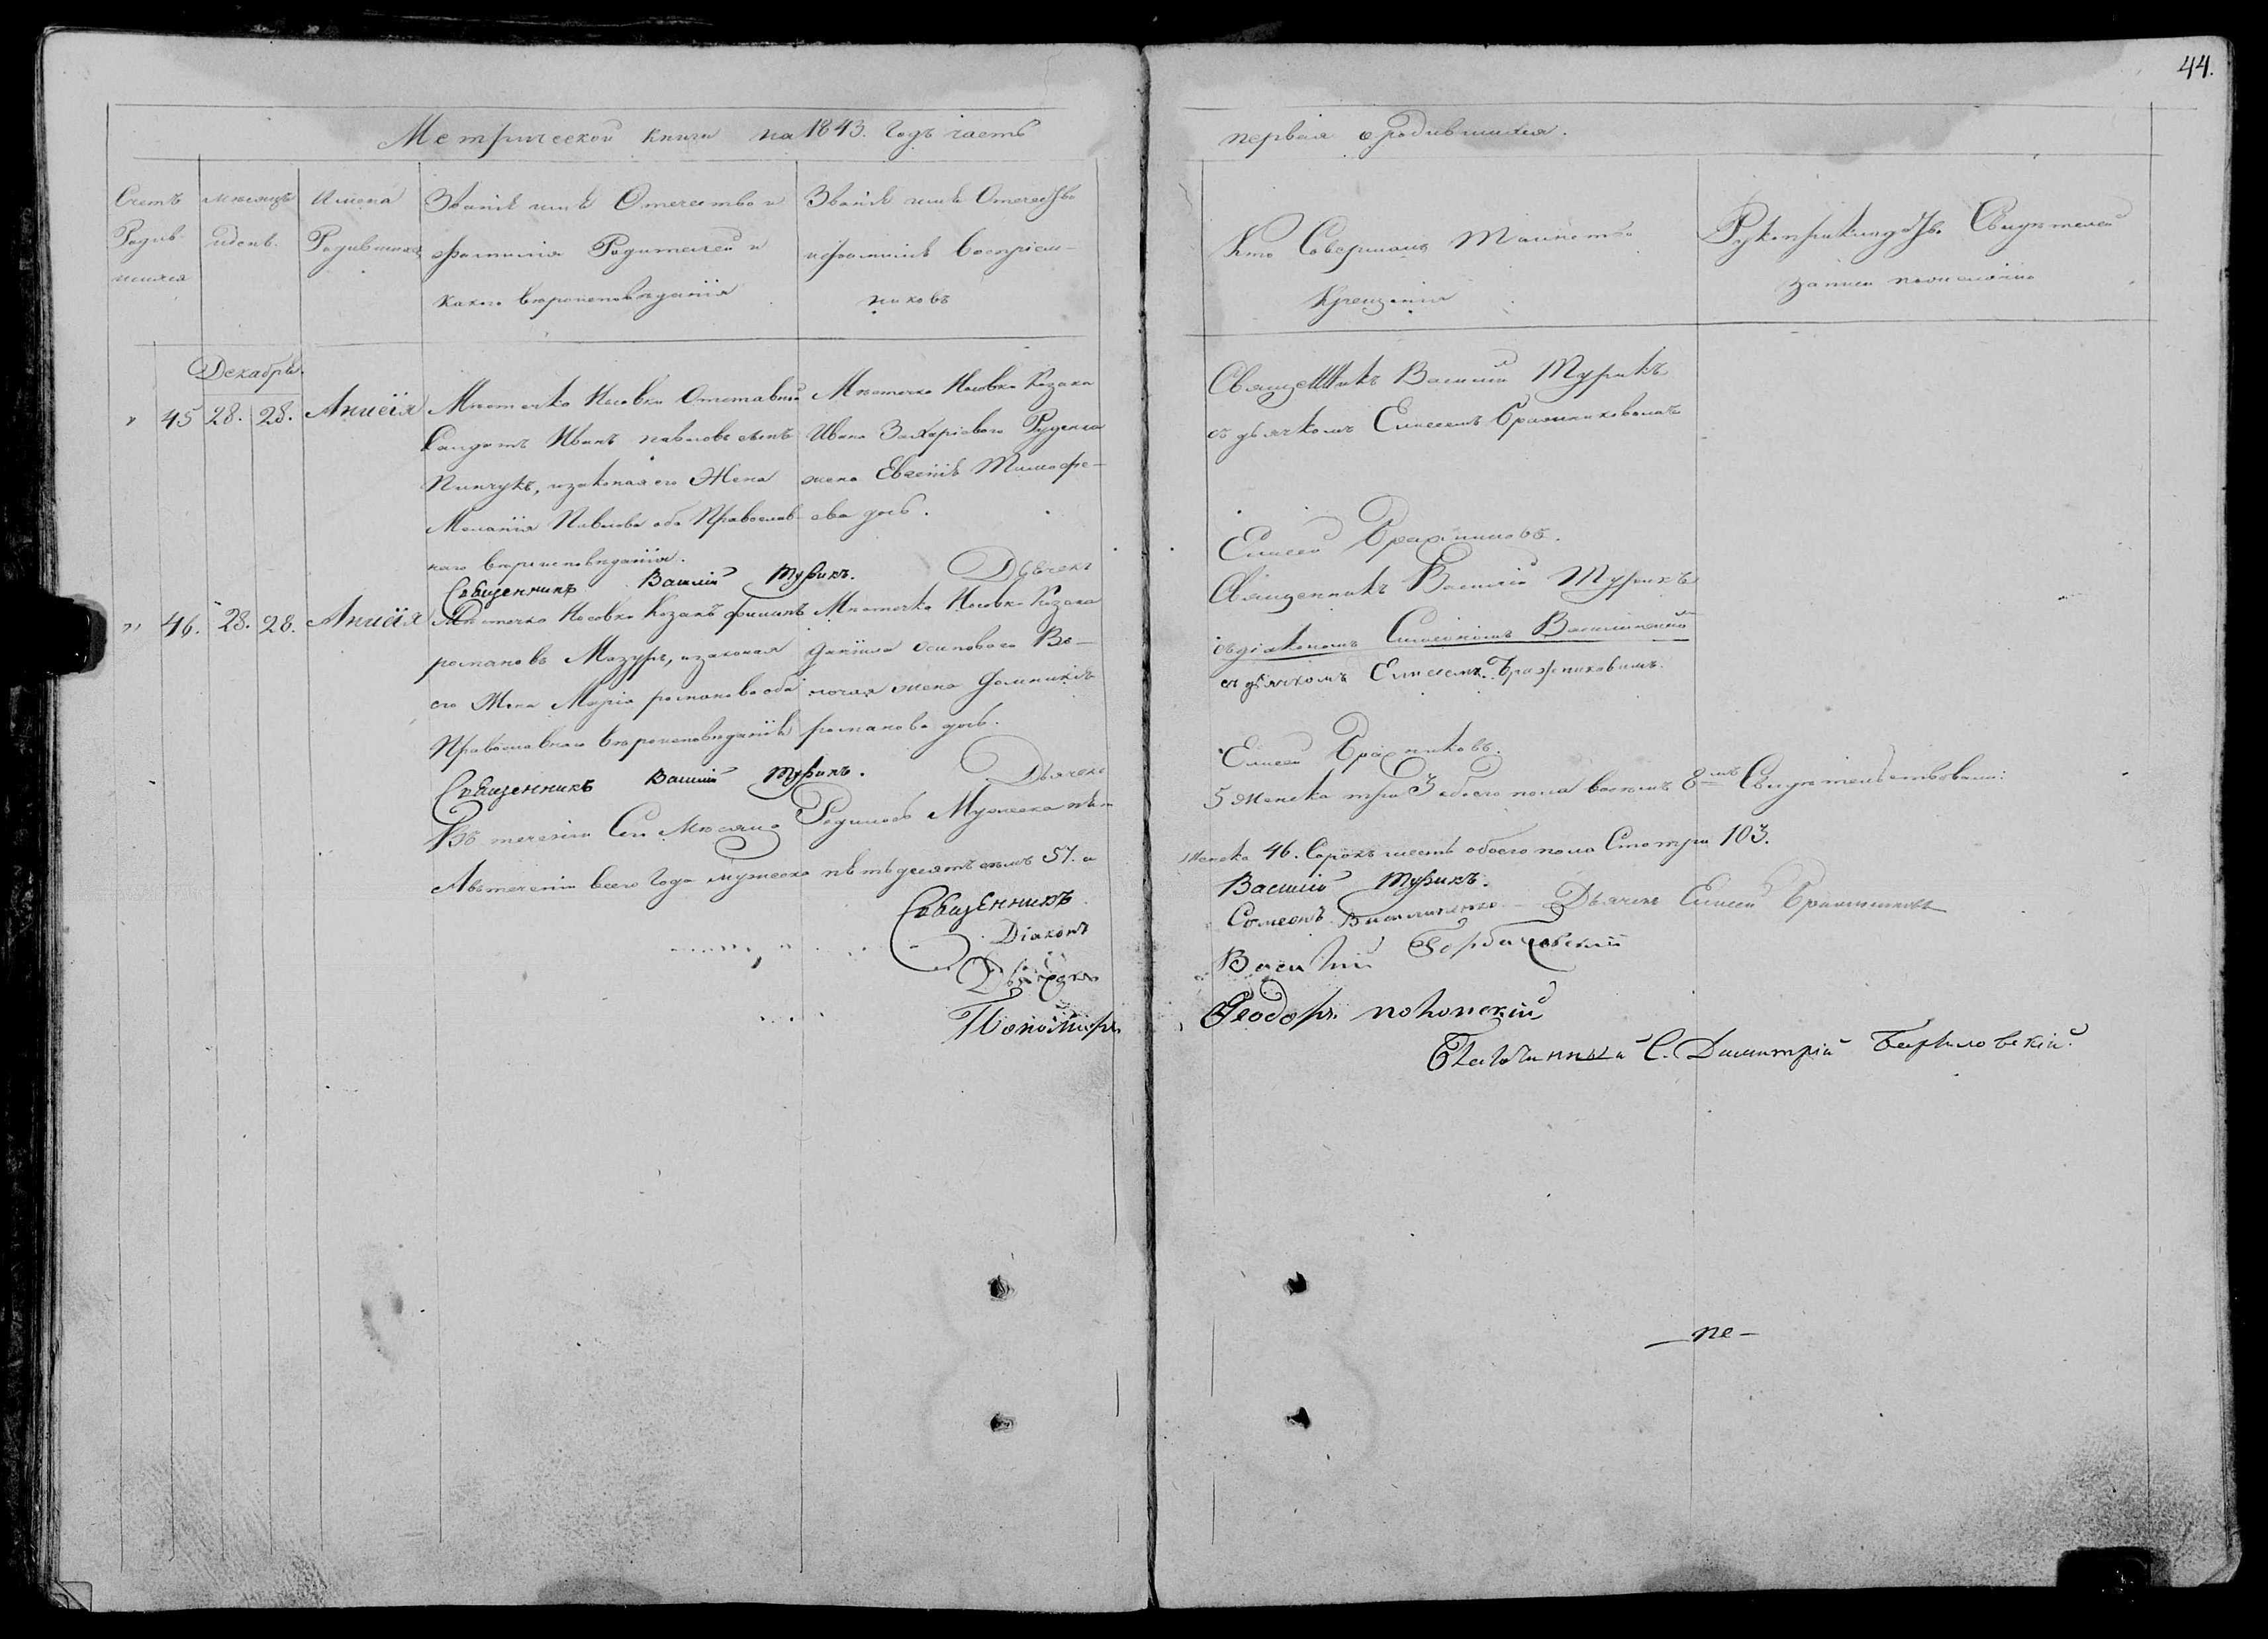 44.
Метрической книги на 1843. Годъ часть
первая о родившихся.
Счетъ
Родив
шихся
мѣсяцъ
и день.
Имена
Родившихся
Званіе имя Отечество и
фамилія Родителей и
какого вѣроисповѣданія
Званіе имя Отечество
и фамилія воспріем-
никовъ
Кто Совершалъ Таинство
Крещенія
Рукоприкладство Свидѣтелей
записи по желанію
Декабрь.
" 45 28. 28. Анисія
Мѣстечка Носовки Отставной
Солдатъ Иванъ павловъ сынъ
Пинчукъ, и законная его Жена
Меланія Павлова оба Православ-
наго вѣроисповѣданія.
Мѣстечка Носовки Козака
Ивана Захаріевого Руденка
жена Евгенія Тимофе-
ева дочь.
Священникъ Василій Турикъ
съ дьячкомъ Елисеемъ Бражниковымъ
Священникъ Василій Турикъ. Дьячекъ
Елисей Бражниковъ.
" 46. 28. 28. Анисія
Мѣстечка Носовки Козакъ филипъ
романовъ Мазуръ, и законная
его Жена Марія романова оба
Православнаго вѣроисповѣданія
Мѣстечка Носовки Козака
Даніила осипового Во-
жена Домникія
романова дочь.
Священникъ Василій Турикъ
съ діакономъ Симеономъ Василинкою
съ дьячкомъ Елисеемъ Бражниковымъ.
Священникъ Василій Турикъ. Дьячекъ
Елисей Бражниковъ.
Въ теченіи Сего Мѣсяца Родилось Мужеска пять
5 Женска три 3 обоего пола восемъ 8мъ Свидѣтельствовали:
А въ теченіи всего Года мужеска пятьдесятъ семъ 57. а
Женска 46. Сорокъ шесть обоего пола Сто три 103.
Священникъ Василій Турикъ.
Діаконъ Симеонъ Василинко – Дьячекъ Елисей Бражниковъ
Дьячекъ Василій Горбачевскій
Пономарь Феодоръ Поконскій
Благочинный С. Димитрій Бариловскій
— не —